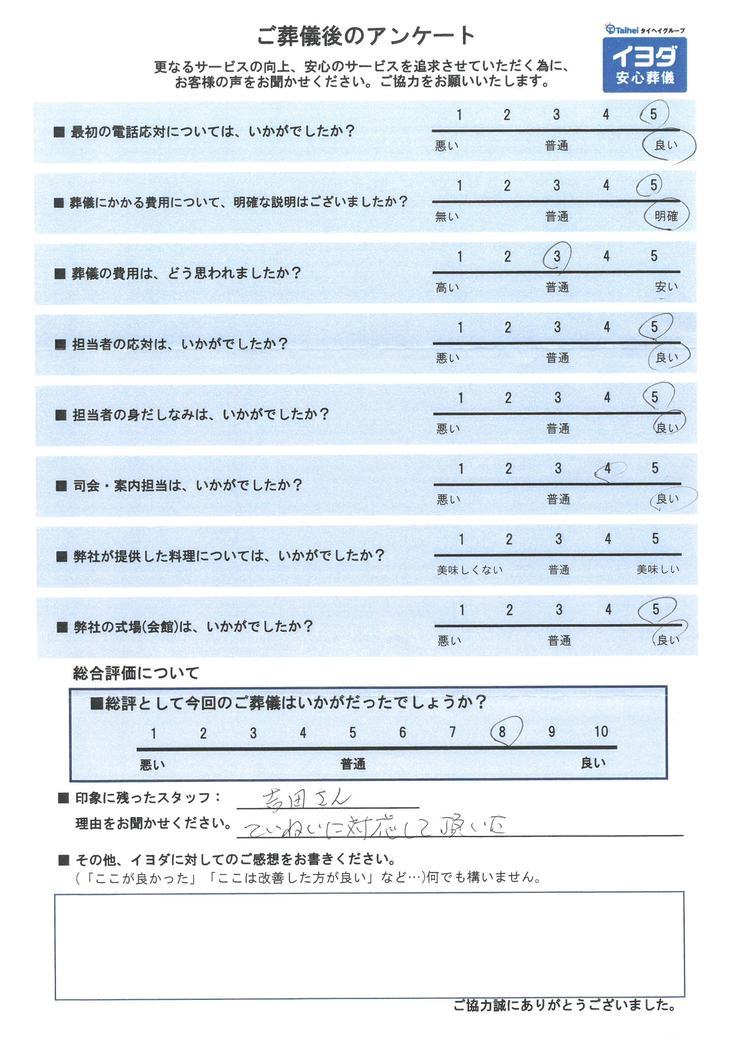 ご葬儀後のアンケート
Taihei タイヘイグループ
イヨダ
安心葬儀
更なるサービスの向上、安心のサービスを追求させていただく為に、
お客様の声をお聞かせください。ご協力をお願いいたします。
■ 最初の電話応対については、いかがでしたか？
1 2 3 4 5
悪い 普通 良い
■ 葬儀にかかる費用について、明確な説明はございましたか？
1 2 3 4 5
無い 普通 明確
■ 葬儀の費用は、どう思われましたか？
1 2 3 4 5
高い 普通 安い
■ 担当者の応対は、いかがでしたか？
1 2 3 4 5
悪い 普通 良い
■ 担当者の身だしなみは、いかがでしたか？
1 2 3 4 5
悪い 普通 良い
■ 司会・案内担当は、いかがでしたか？
1 2 3 4 5
悪い 普通 良い
■ 弊社が提供した料理については、いかがでしたか？
1 2 3 4 5
美味しくない 普通 美味しい
■ 弊社の式場(会館)は、いかがでしたか？
1 2 3 4 5
悪い 普通 良い
総合評価について
■総評として今回のご葬儀はいかがだったでしょうか？
1 2 3 4 5 6 7 8 9 10
悪い 普通 良い
■ 印象に残ったスタッフ： 吉田さん
理由をお聞かせください。 ていねいに対応して頂いた
■ その他、イヨダに対してのご感想をお書きください。
(「ここが良かった」「ここは改善した方が良い」など…)何でも構いません。
ご協力誠にありがとうございました。